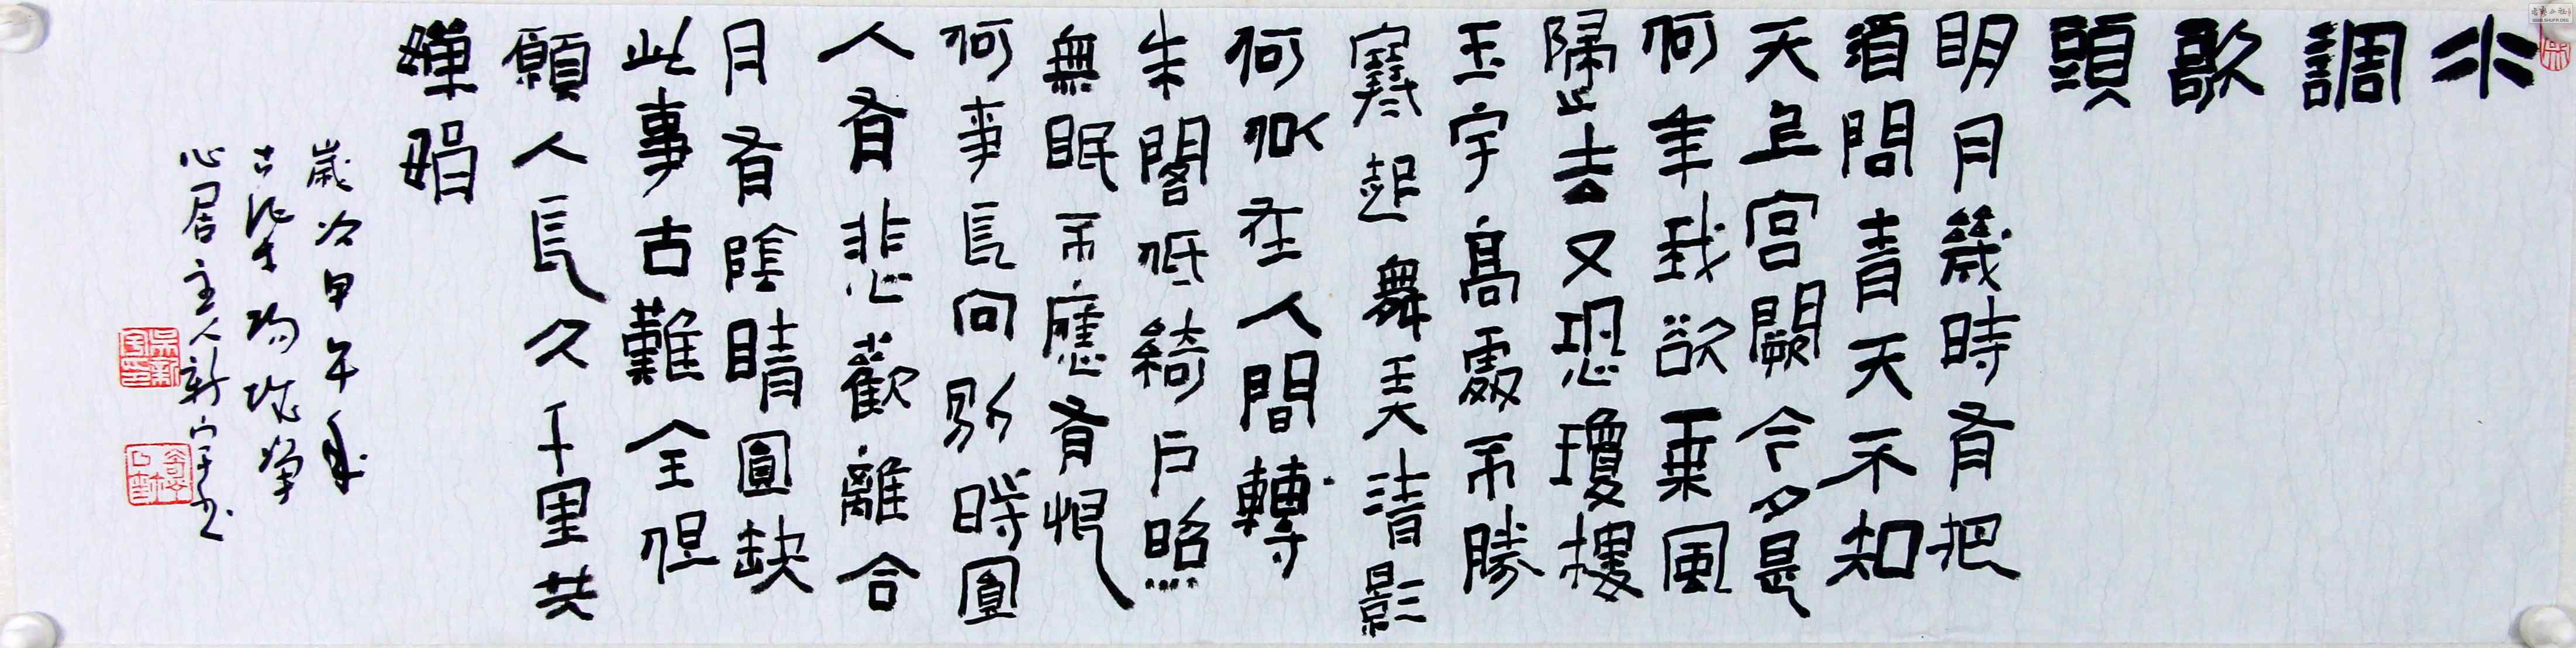 水調歌頭
明月幾時有把
酒問青天不知
天上宮闕今夕是
何年我欲乘風
歸去又恐瓊樓
玉宇高處不勝
寒起舞弄清影
何似在人間轉
朱閣低綺戶照
無眠不應有恨
何事長向別時圓
人有悲歡離合
月有陰晴圓缺
此事古難全但
願人長久千里共
嬋娟
歲次甲午年
心居主人新宇书
吳新宇印